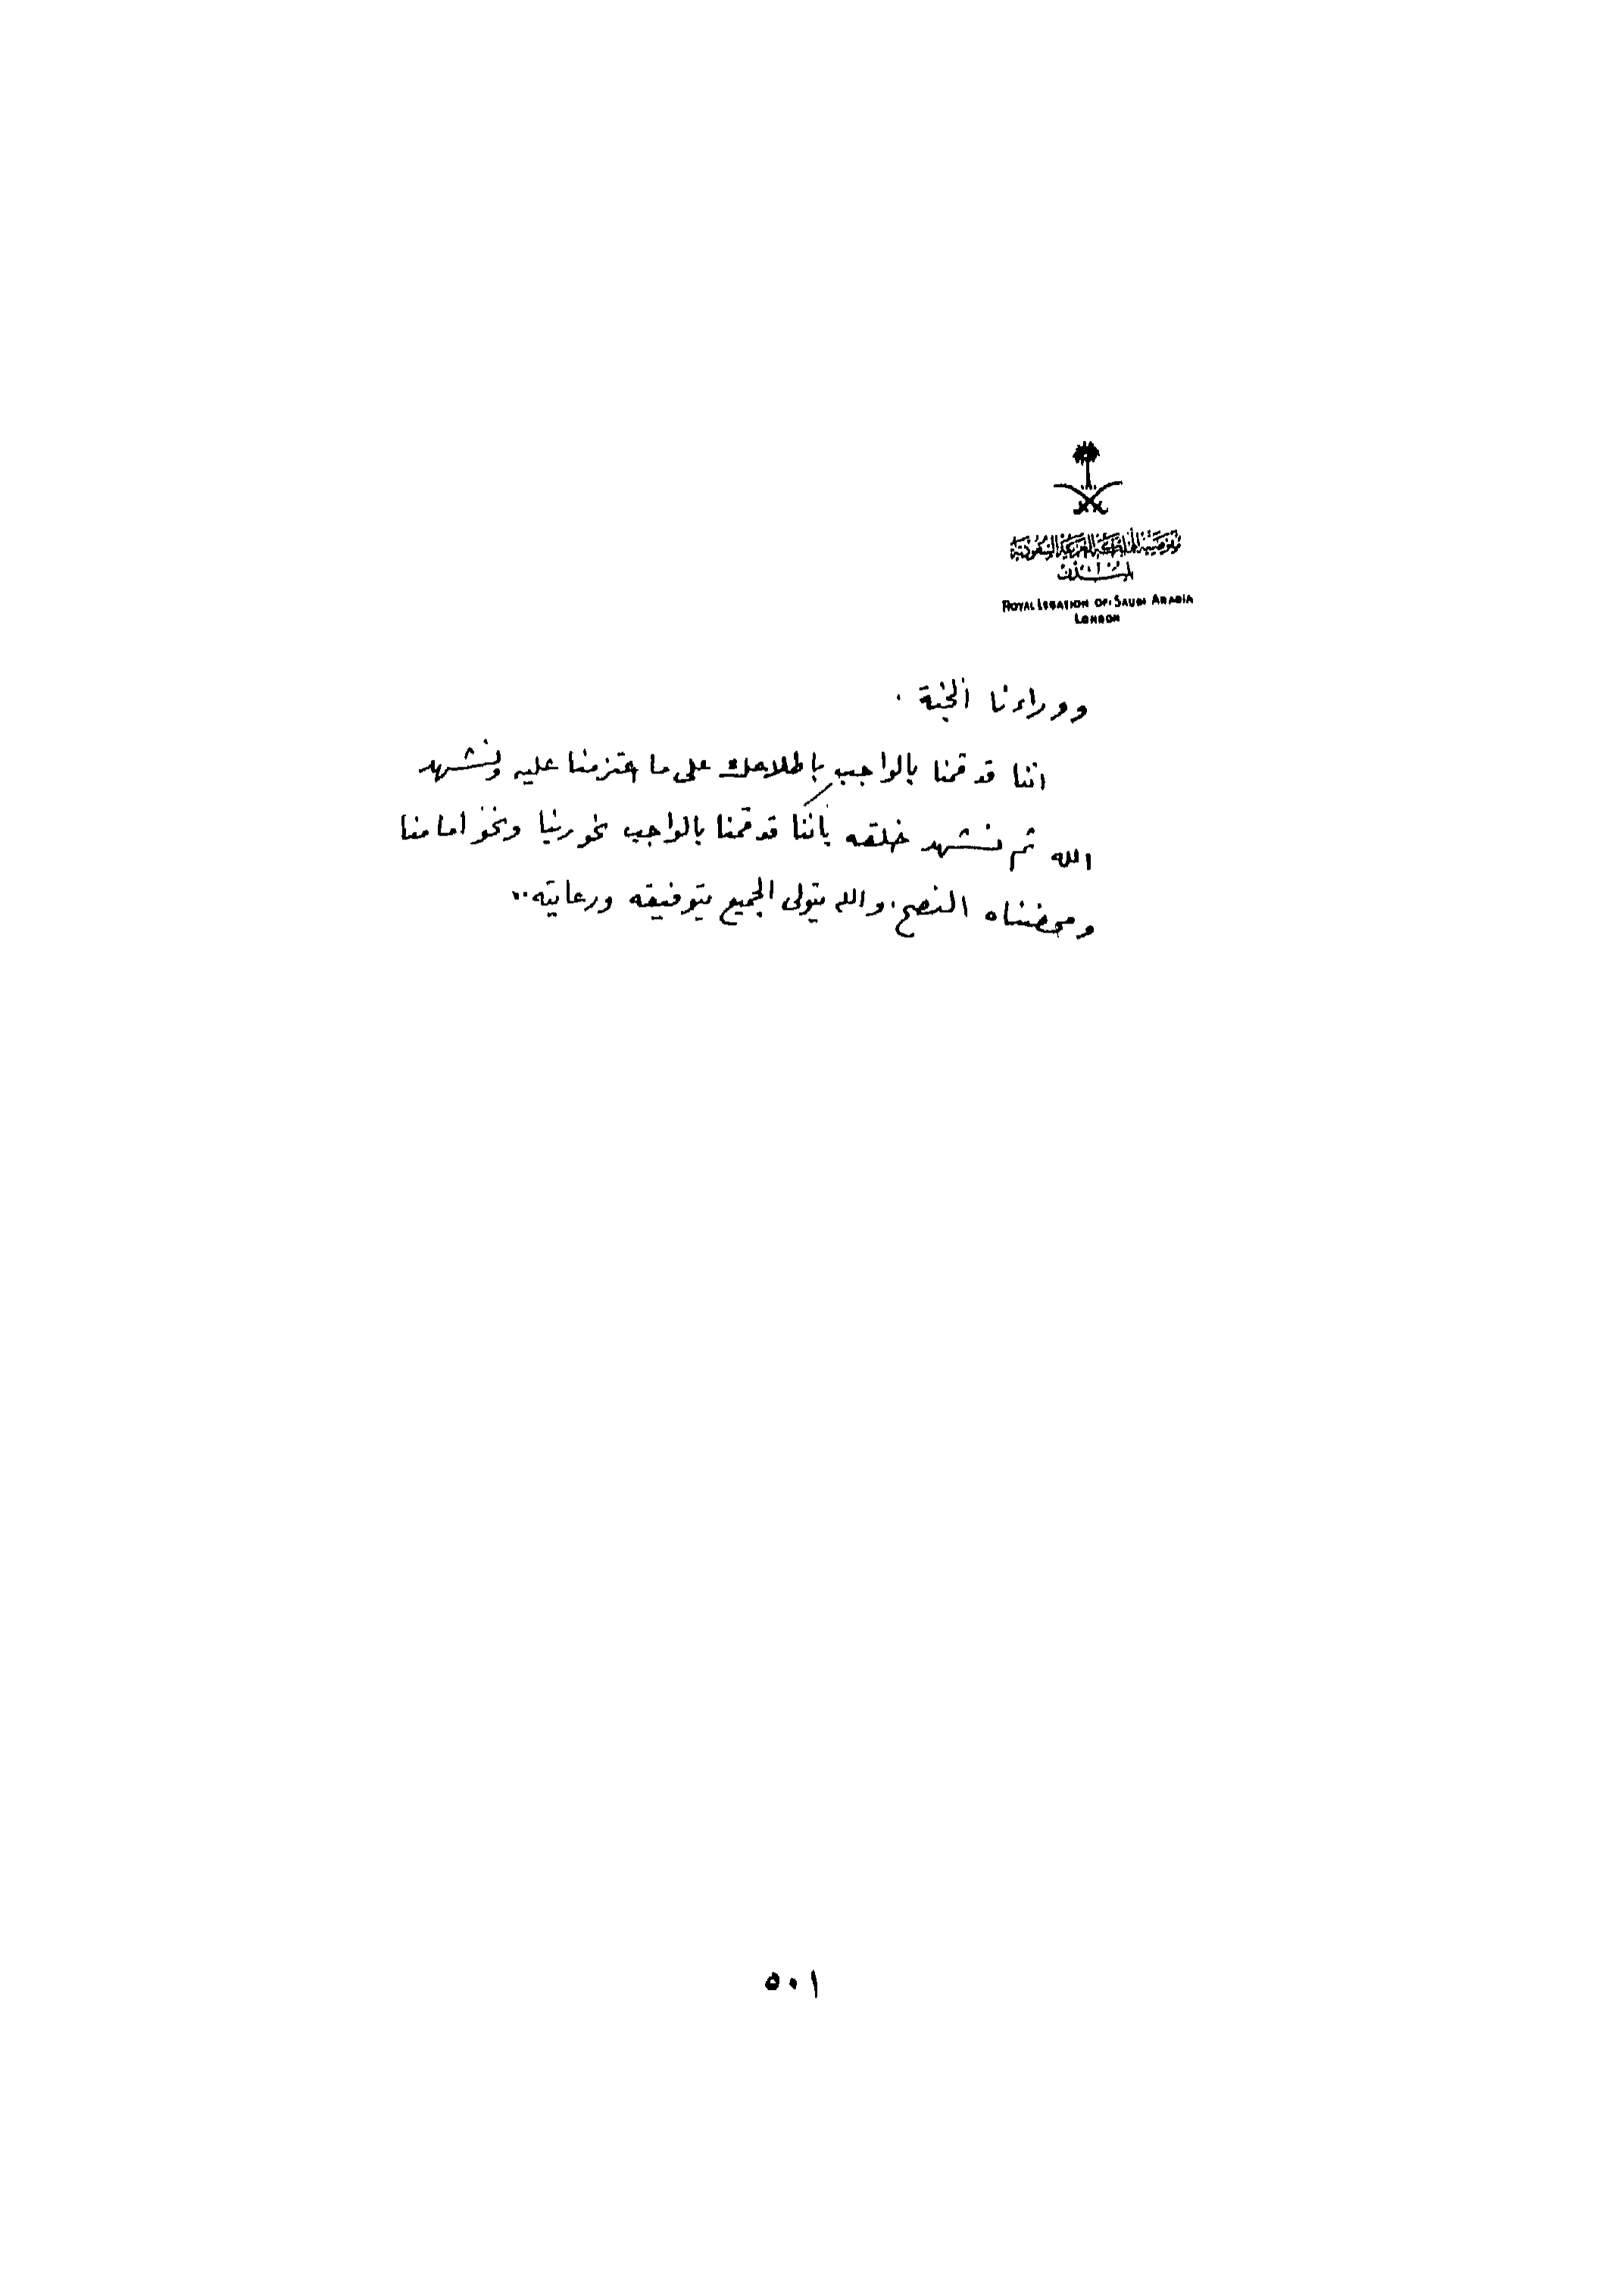 مفوضية المملكة العربية السعودية
بلندن
ROYAL LEGATION OF SAUDI ARABIA
LONDON
ووراءنا الجنة .
اننا قد قمنا بالواجب باطلاعك على ما اعتزمنا عليه ونشهد
الله ثم نشهد خلقه بأننا قد قمنا بالواجب نحو ربنا ونحو امامنا
ومحضناه النصح . والله يتولى الجميع بتوفيقه ورعايته ..
٥٠١